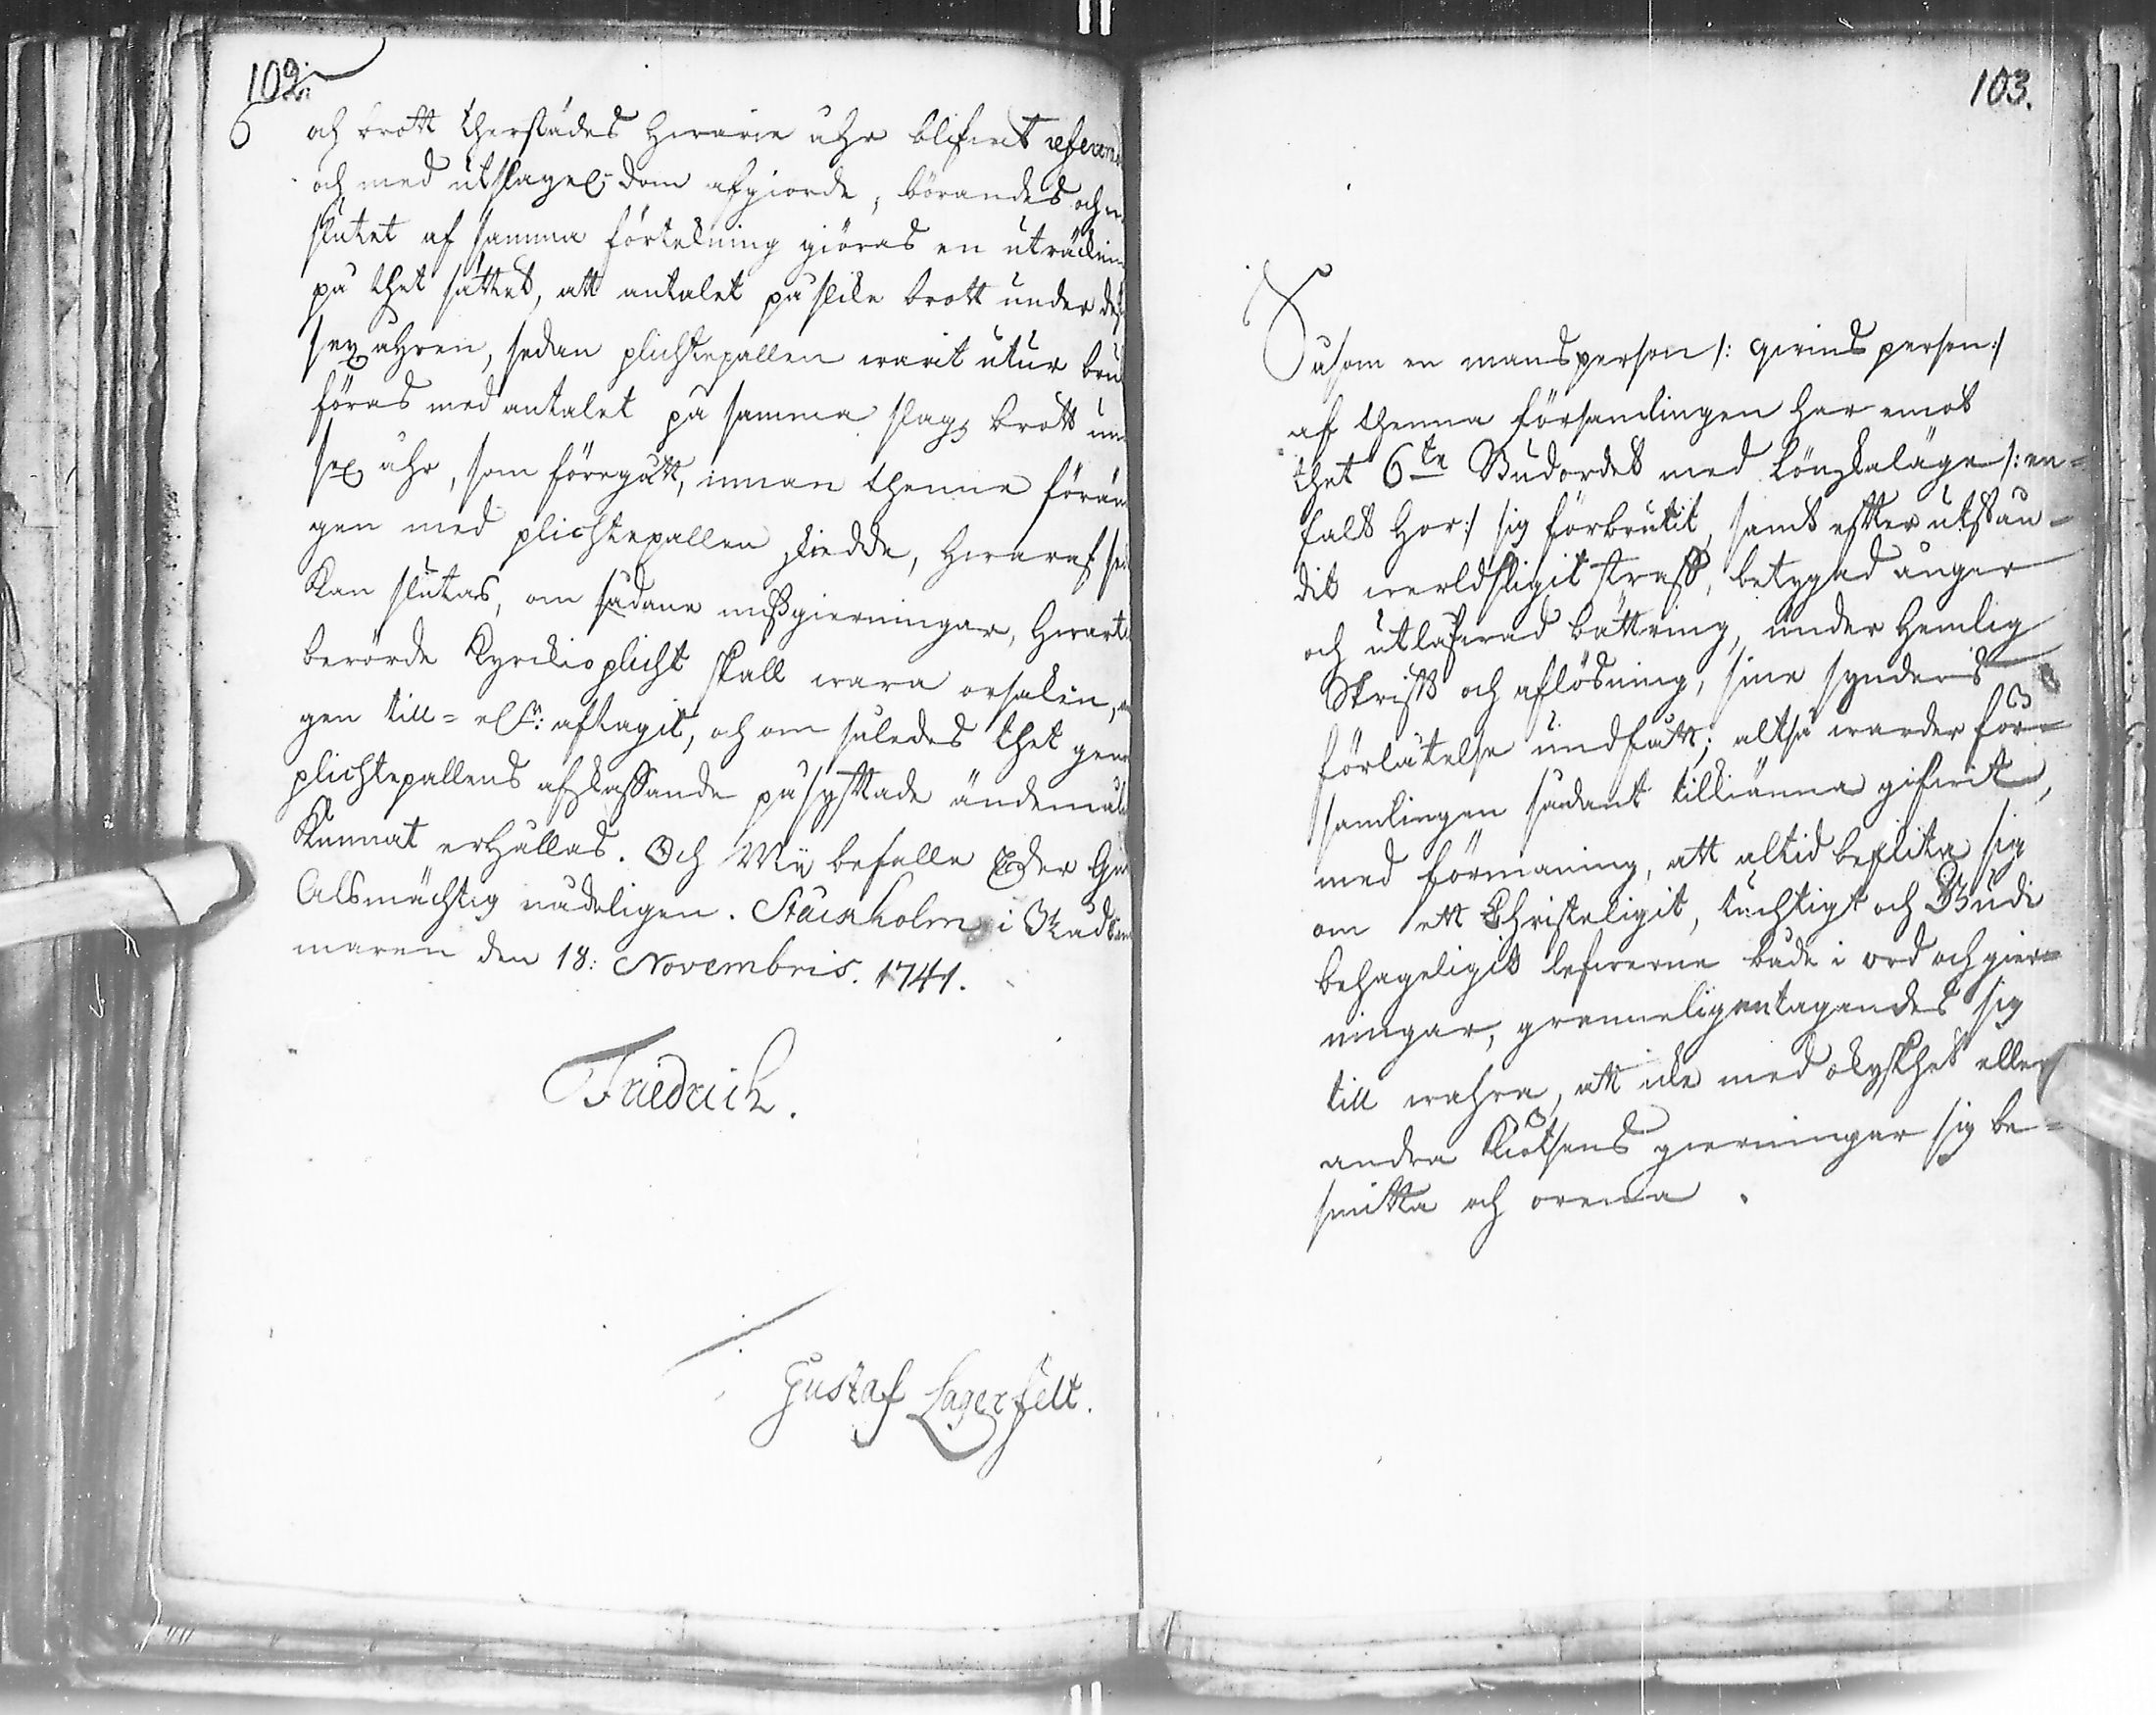 102.
och brott therstädes hwarie åhr blifwit refererade
och med utslag el. dom afgiorde, börandes och
slutet af samma förtekning giöras en uträckni
på thet sättet, att antalet på slike brott under de
sex åhren, sedan plichtepallen warit utur bru
föras med antalet på samma slags brott un
sex åhr, som föregått, innan thenne förän
gen med plichtepallen skiedde, hwaraf se
kan slutas, om sådane missgierningar, hwart
berörde Kyrckioplicht skall wara orsaken,
gen till- el:r aftagit, och om således thet gen
plichtepallens afskaffande påsyftade ändemåle
kunnat erhållas. Och Wij befalle Eder Gud
Alsmächtig nådeligen. Stockholm i Rådkam
maren den 18: Novembris. 1741.
Friedrich.
Gustaf Lagerfelt.
103.
Såsom en mansperson /: qwins person :/
af thenna församlingen har emot
thet 6te Budordet med Lönskaläge /: en-
falt hor :/ sig förbrutit, samt efter utstån-
dit werldsligit straff, betygad ånger
och utlåfwad bättring, under hemlig
Skrift och aflösning, sine synders
förlåtelse undfått; altså warder för-
samlingen sådant tillkiänna gifwit,
med förmaning, att altid beflita sig
om ett Christeligit, tuchtigt och Gudi
behageligit lefwerne både i ord och gier-
ningar, granneligen tagandes sig
till wahra, att icke med okyskhet eller
andra Kiötsens gierningar sig be-
smitta och orena.